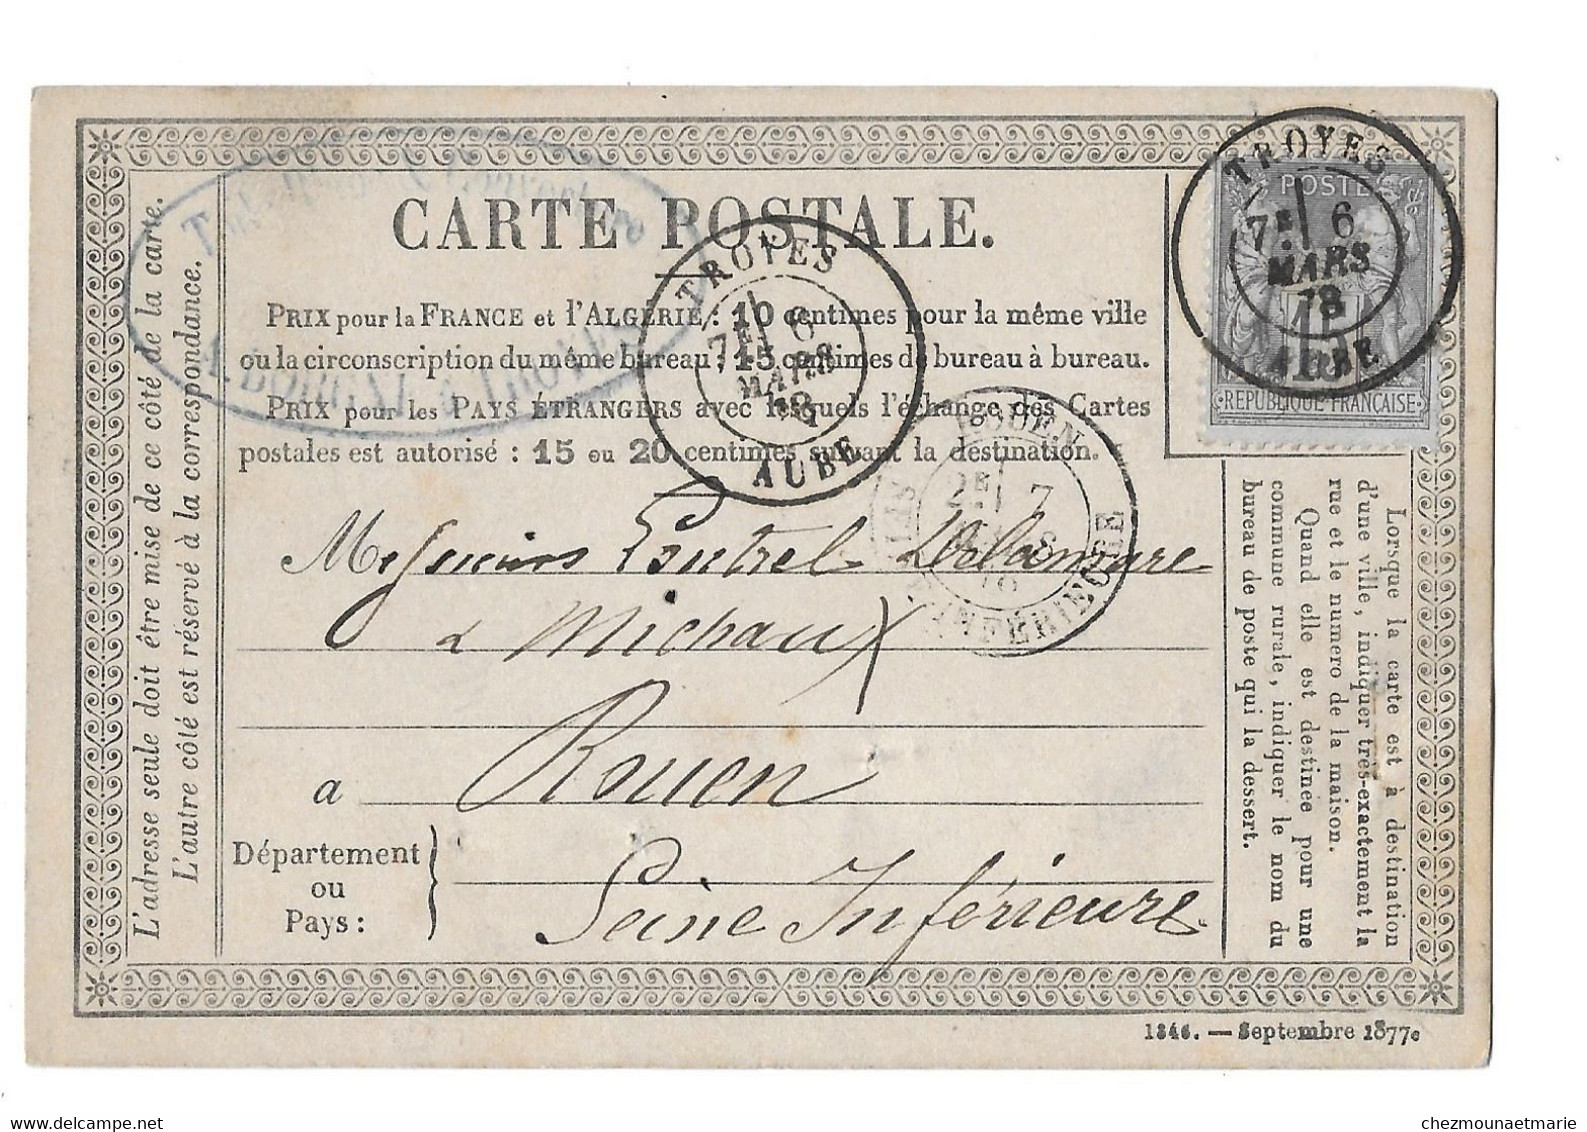 CARTE POSTALE.
PRIX pour la FRANCE et l'ALGÉRIE : 10 centimes pour la même ville
ou la circonscription du même bureau : 15 centimes de bureau à bureau.
PRIX pour les PAYS ÉTRANGERS avec lesquels l'échange des Cartes
postales est autorisé : 15 ou 20 centimes suivant la destination.
L'adresse seule doit être mise de ce côté de la carte.
L'autre côté est réservé à la correspondance.
TROYES
7E 6
MARS
78
AUBE
TROYES
7E 6
MARS
78
AUBE
POSTE
REPUBLIQUE FRANÇAISE
ROUEN
2E 7
INFÉRIEURE
Messieurs
& Michaux
à Rouen
Département
ou
Pays :
Seine Inférieure
Lorsque la carte est à destination
d'une ville, indiquer très-exactement la
rue et le numéro de la maison.
Quand elle est destinée pour une
commune rurale, indiquer le nom du
bureau de poste qui la dessert.
1846. — Septembre 1877
chezmounaetmarie